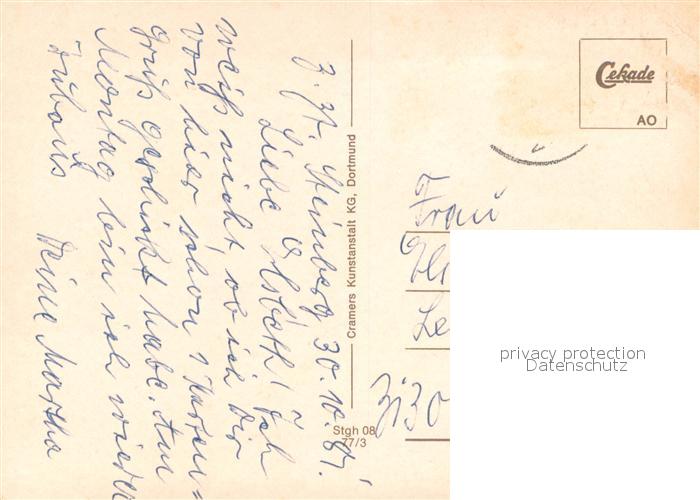 z. Zt. Steinberg 30.10.81.
Liebe Elsbeth! Ich
weiß nicht ob ich Dir
von hier schon 1 Karten=
gruß geschickt habe. Am
Montag bin ich wieder
zuhaus
Deine Martha
Cramers Kunstanstalt KG, Dortmund
Stgh 08
77/3
Cekade
AO
Frau
Els
Le
3130
privacy protection
Datenschutz